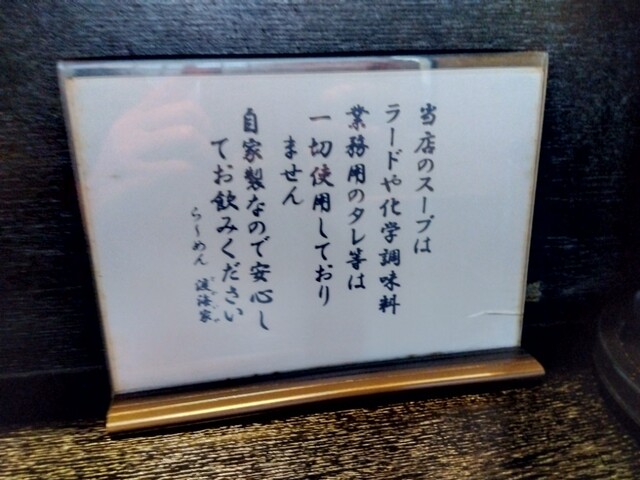 当店のスープは
ラードや化学調味料
業務用のタレ等は
一切使用しており
ません
自家製なので安心し
てお飲みください
らーめん 渡海家